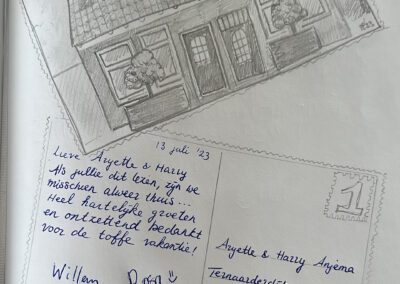 13 juli '23
Lieve Aryette & Harry
Als jullie dit lezen, zijn we
misschien alweer thuis...
Heel hartelijke groeten
en ontzettend bedankt
voor de toffe vakantie!
Willem
1
Aryette & Harry Anjema